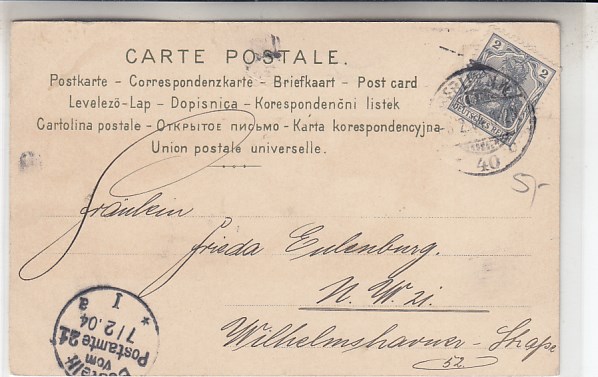 CARTE POSTALE.
Postkarte – Correspondenzkarte – Briefkaart – Post card
Levelező-Lap – Dopisnica – Korespondenční listek
Cartolina postale – Открытое письмо – Karta korespondencyjna
Union postale universelle.
2 2
DEUTSCHES REICH
40
5,-
Fräulein
Frieda Eulenburg.
N. W. 21.
Wilhelmshavner-Straße
52.
Bestellt
vom
Postamte 21
7/2.04
I a